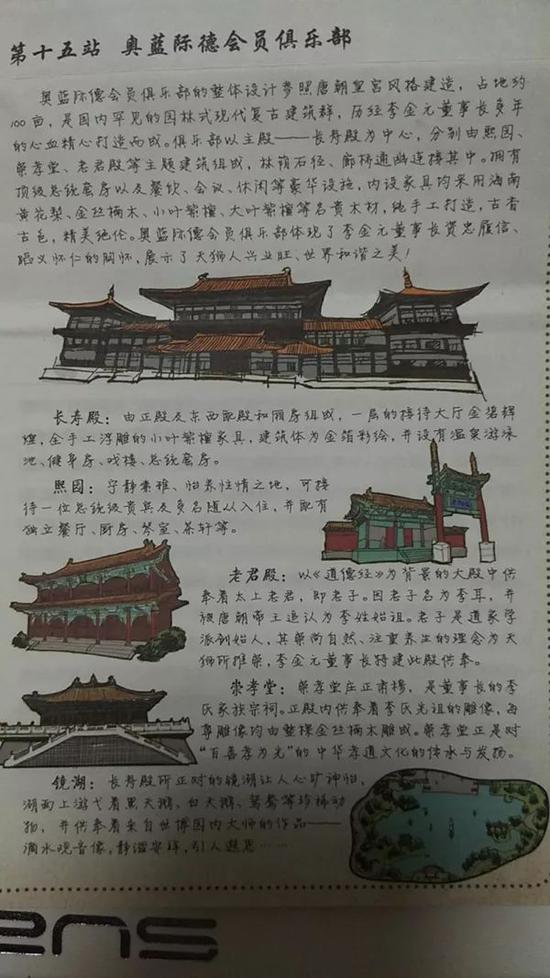 第十五站 奥蓝际德会员俱乐部
奥蓝际德会员俱乐部的整体设计参照唐朝皇宫风格建造，占地约
100亩，是国内罕见的园林式现代复古建筑群，历经李金元董事长多年
的心血精心打造而成。俱乐部以主殿——长寿殿为中心，分别由熙园、
崇孝堂、老君殿等主题建筑组成，林荫石径、廊桥通幽连接其中。拥有
顶级总统套房以及餐饮、会议、休闲等豪华设施，内设家具均采用海南
黄花梨、金丝楠木、小叶紫檀、大叶紫檀等名贵木材，纯手工打造，古香
古色，精美绝伦。奥蓝际德会员俱乐部体现了李金元董事长资忠履信、
蹈义怀仁的胸怀，展示了天狮人兴业旺、世界和谐之美！
长寿殿：由正殿及东西配殿和厢房组成，一层的接待大厅金碧辉
煌，全手工浮雕的小叶紫檀家具，建筑体为金箔彩绘，并设有温泉游泳
池、健身房、戏楼、总统套房。
熙园：宁静素雅、怡养性情之地，可接
待一位总统级贵宾及多名随从入住，并配有
独立餐厅、厨房、琴室、茶轩等。
老君殿：以《道德经》为背景的大殿中供
奉着太上老君，即老子。因老子名为李耳，并
被唐朝帝王追认为李姓始祖。老子是道家学
派创始人，其崇尚自然、注重养生的理念为天
狮所推崇，李金元董事长特建此殿供奉。
崇孝堂：崇孝堂庄正肃穆，是董事长的李
氏家族宗祠。正殿内供奉着李氏先祖的雕像，每
尊雕像均由整棵金丝楠木雕成。崇孝堂正是对
“百善孝为先”的中华孝道文化的传承与发扬。
镜湖：长寿殿所正对的镜湖让人心旷神怡，
湖面上游弋着黑天鹅、白天鹅、鸳鸯等珍稀动
物，并供奉着来自世博国内大师的作品——
滴水观音像，静谧安祥，引人遐思……
ens